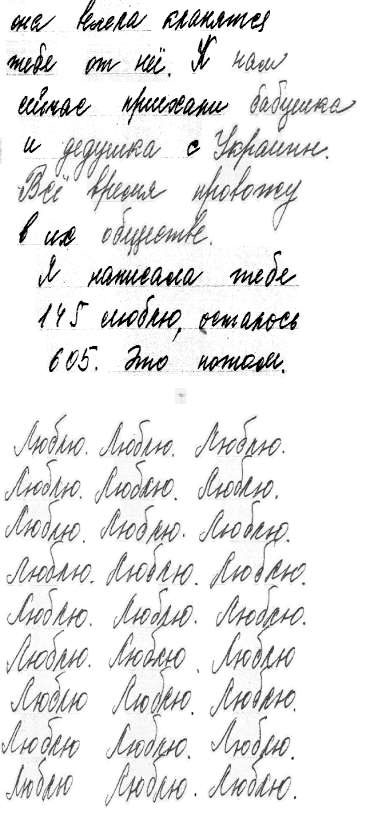 она велела кланятся
тебе от неё. К нам
сейчас приехали бабушка
и дедушка с Украины.
Всё время провожу
в их обществе.
Я написала тебе
145 люблю, осталось
605. Это потом.
Люблю. Люблю. Люблю.
Люблю. Люблю. Люблю.
Люблю. Люблю. Люблю.
Люблю. Люблю. Люблю.
Люблю. Люблю. Люблю.
Люблю. Люблю. Люблю
Люблю Люблю. Люблю.
Люблю Люблю. Люблю.
Люблю Люблю. Люблю.